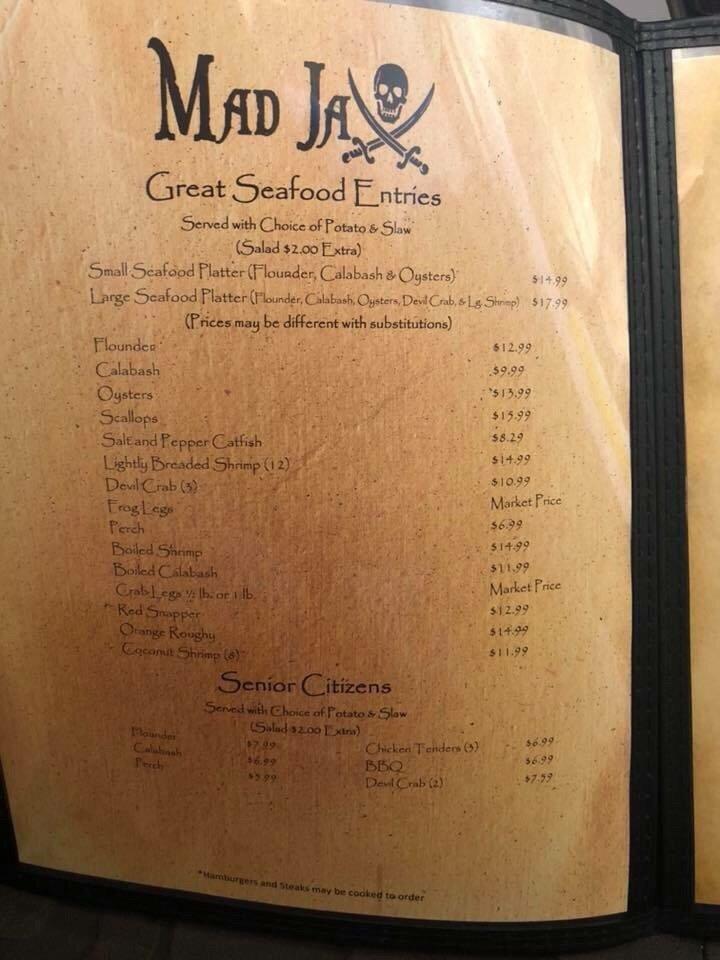 MAD JAX
Great Seafood Entries
Served with Choice of Potato & Slaw
(Salad $2.00 Extra)
Small Seafood Platter (Flounder, Calabash & Oysters) $14.99
Large Seafood Platter (Flounder, Calabash, Oysters, Devil Crab, & Lg. Shrimp) $17.99
(Prices may be different with substitutions)
Flounder $12.99
Calabash $9.99
Oysters $13.99
Scallops $15.99
Salt and Pepper Catfish $8.29
Lightly Breaded Shrimp (12) $14.99
Devil Crab (3) $10.99
Frog Legs Market Price
Perch $6.99
Boiled Shrimp $14.99
Boiled Calabash $11.99
Crab Legs ½ lb. or 1 lb. Market Price
Red Snapper $12.99
Orange Roughy $14.99
Coconut Shrimp (8) $11.99
Senior Citizens
Served with Choice of Potato & Slaw
(Salad $2.00 Extra)
Flounder $7.99 Chicken Tenders (3) $6.99
Calabash $6.99 BBQ $6.99
Perch $5.99 Devil Crab (2) $7.59
*Hamburgers and Steaks may be cooked to order